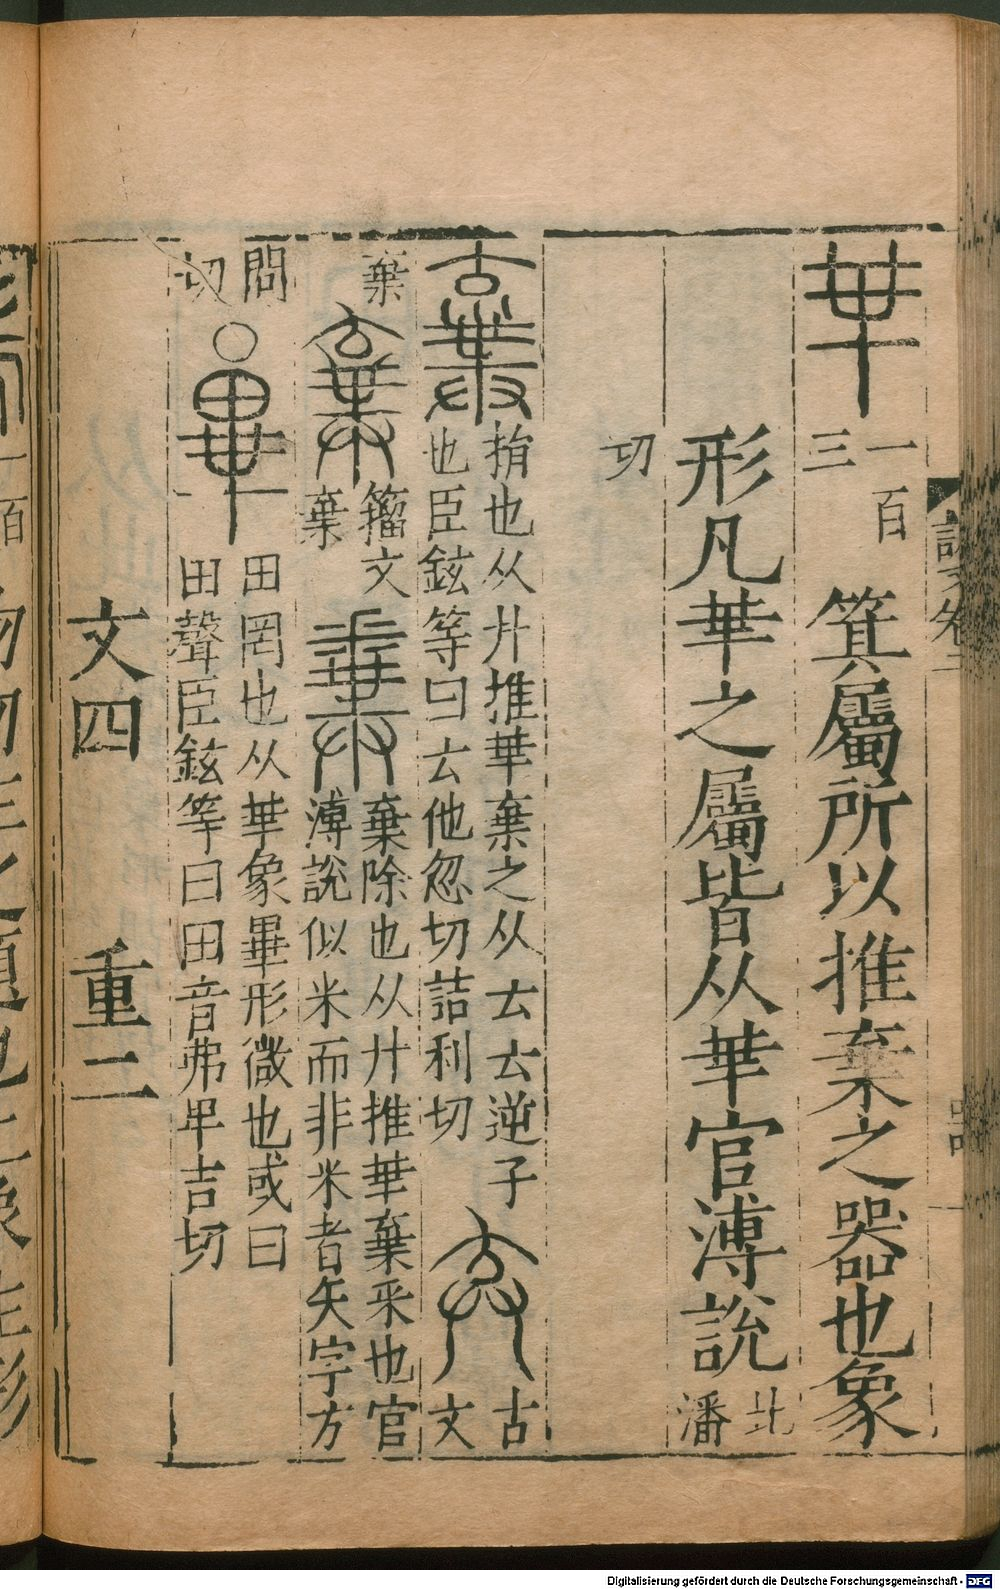 𠦒 一百三 箕屬所以推棄之器也象
形凡𠦒之屬皆从𠦒官溥說 北潘
切
棄 捐也从廾推𠦒棄之从𠫓𠫓逆子
也臣鉉等曰𠫓他忽切詰利切 𠔉 古文
棄 棄 籀文棄 糞 棄除也从廾推𠦒棄釆也官
溥說似米而非米者矢字方
問切 畢 田罔也从𠦒象畢形微也或曰
田聲臣鉉等曰田音弗卑吉切
文四 重二
Digitalisierung gefördert durch die Deutsche Forschungsgemeinschaft - DFG